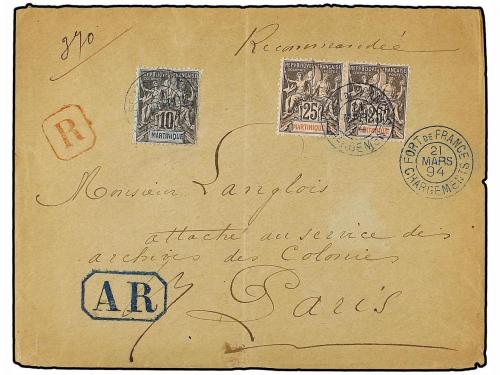 370
Recommandée
REPUBLIQUE FRANÇAISE
10
MARTINIQUE
REPUBLIQUE FRANÇAISE
25
MARTINIQUE
REPUBLIQUE FRANÇAISE
25
R
FORT DE FRANCE
21
MARS
94
CHARGEMENTS
Monsieur Langlois
attaché au service des
archives des Colonies
AR
Paris